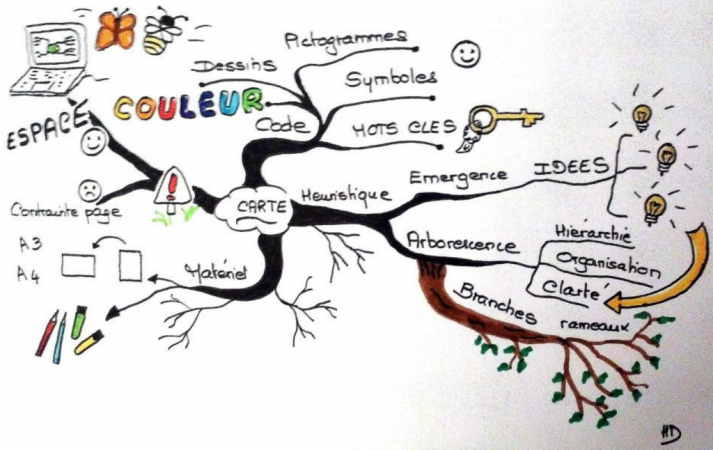 Pictogrammes
Dessins
Symboles
COULEUR
Code
MOTS CLES
ESPACE
CARTE
Heuristique
Emergence
IDEES
Contrainte page
A3
A4
Matériel
Arborescence
Hiérarchie
Organisation
Clarté
Branches
rameaux
HD